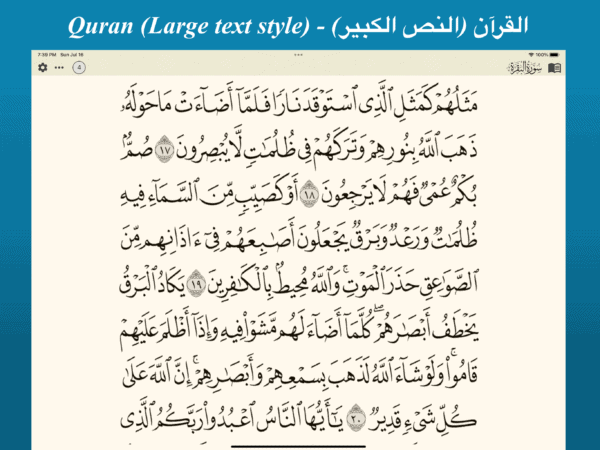 Quran (Large text style) - القرآن (النص الكبير)
7:39 PM Sun Jul 16
100%
4
سورة البقرة
مَثَلُهُمْ كَمَثَلِ ٱلَّذِى ٱسْتَوْقَدَ نَارًا فَلَمَّآ أَضَآءَتْ مَا حَوْلَهُۥ
ذَهَبَ ٱللَّهُ بِنُورِهِمْ وَتَرَكَهُمْ فِى ظُلُمَٰتٍ لَّا يُبْصِرُونَ ١٧ صُمٌّۢ
بُكْمٌ عُمْىٌ فَهُمْ لَا يَرْجِعُونَ ١٨ أَوْ كَصَيِّبٍ مِّنَ ٱلسَّمَآءِ فِيهِ
ظُلُمَٰتٌ وَرَعْدٌ وَبَرْقٌ يَجْعَلُونَ أَصَٰبِعَهُمْ فِىٓ ءَاذَانِهِم مِّنَ
ٱلصَّوَٰعِقِ حَذَرَ ٱلْمَوْتِ ۚ وَٱللَّهُ مُحِيطٌۢ بِٱلْكَٰفِرِينَ ١٩ يَكَادُ ٱلْبَرْقُ
يَخْطَفُ أَبْصَٰرَهُمْ ۖ كُلَّمَآ أَضَآءَ لَهُم مَّشَوْا۟ فِيهِ وَإِذَآ أَظْلَمَ عَلَيْهِمْ
قَامُوا۟ ۚ وَلَوْ شَآءَ ٱللَّهُ لَذَهَبَ بِسَمْعِهِمْ وَأَبْصَٰرِهِمْ ۚ إِنَّ ٱللَّهَ عَلَىٰ
كُلِّ شَىْءٍ قَدِيرٌ ٢٠ يَٰٓأَيُّهَا ٱلنَّاسُ ٱعْبُدُوا۟ رَبَّكُمُ ٱلَّذِى